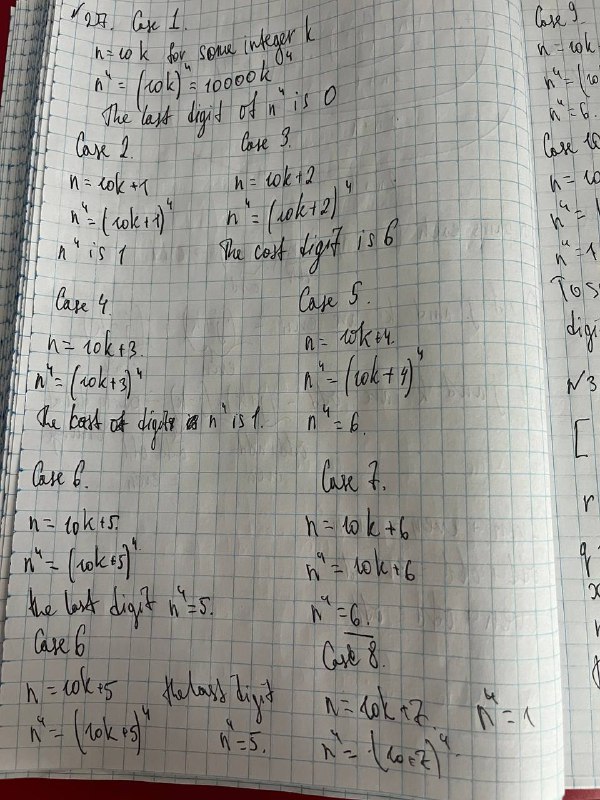 √27. Case 1.
n = 10k for some integer k
n⁴ = (10k)⁴ = 10000k⁴
The last digit of n⁴ is 0
Case 2.
n = 10k+1
n⁴ = (10k+1)⁴
n⁴ is 1
Case 3.
n = 10k+2
n⁴ = (10k+2)⁴
The last digit is 6
Case 4.
n = 10k+3.
n⁴ = (10k+3)⁴
The last digit n⁴ is 1.
Case 5.
n = 10k+4.
n⁴ = (10k+4)⁴
n⁴ = 6.
Case 6.
n = 10k+5.
n⁴ = (10k+5)⁴
the last digit n⁴ = 5.
Case 7.
n = 10k+6
n⁴ = 10k+6
n⁴ = 6.
Case 6
n = 10k+5 the last digit
n⁴ = (10k+5)⁴ n⁴ = 5.
Case 8.
n = 10k+7 n⁴ = 1
n⁴ = (10+7)⁴
Case 9.
n = 10k
n⁴ = (10
n⁴ = 6.
Case 10
n = 10
n⁴ =
n⁴ = 1
To s
digi
√3
[
r
q